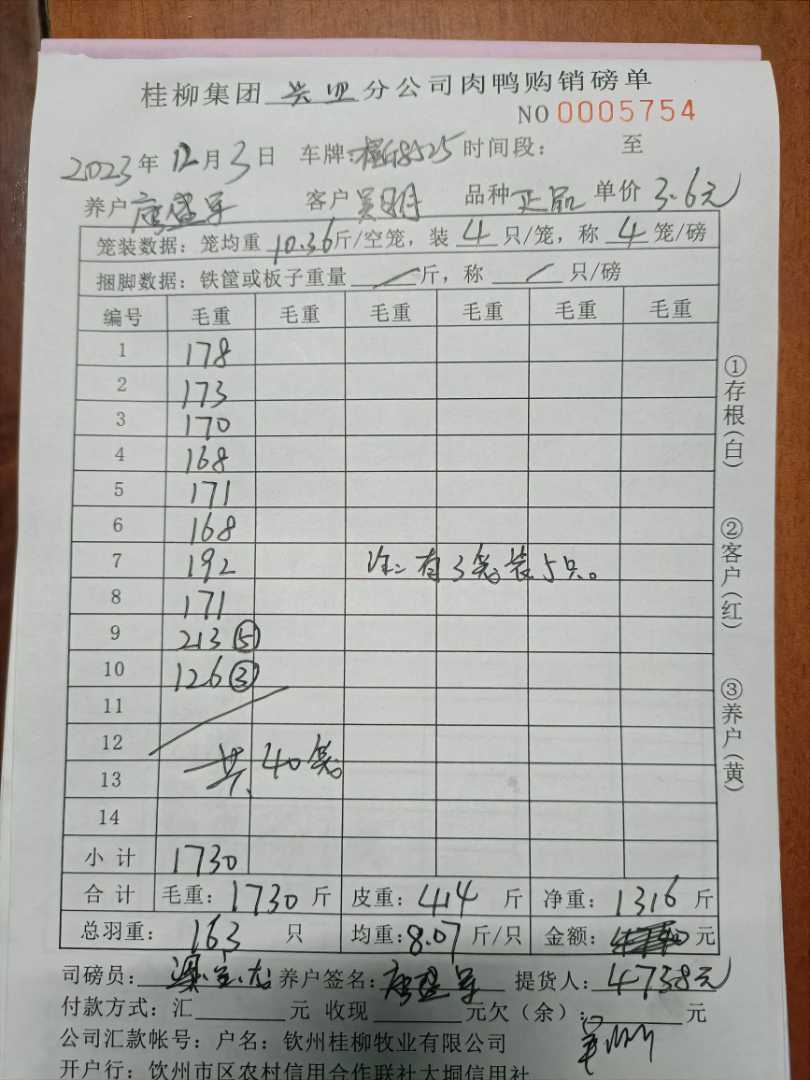 桂柳集团 兴业 分公司肉鸭购销磅单
NO 0005754
2023年 12月 3日 车牌: 时间段: 至
养户 唐盛军 客户 吴明 品种 正品 单价 3.6元
笼装数据: 笼均重 10.36斤/空笼, 装 4 只/笼, 称 4 笼/磅
捆脚数据: 铁筐或板子重量 / 斤, 称 / 只/磅
编号 毛重 毛重 毛重 毛重 毛重 毛重
1 178
2 173
3 170
4 168
5 171
6 168
7 192 注: 有3笼装5只。
8 171
9 213 ⑤
10 126 ③
11
12
共 40笼
13
14
小计 1730
合计 毛重: 1730 斤 皮重: 414 斤 净重: 1316 斤
总羽重: 163 只 均重: 8.07 斤/只 金额: 元
司磅员: 养户签名: 唐盛军 提货人: 4738元
付款方式: 汇 元 收现 元欠(余): 元
公司汇款帐号: 户名: 钦州桂柳牧业有限公司
开户行: 钦州市区农村信用合作联社大垌信用社
①存根(白)
②客户(红)
③养户(黄)